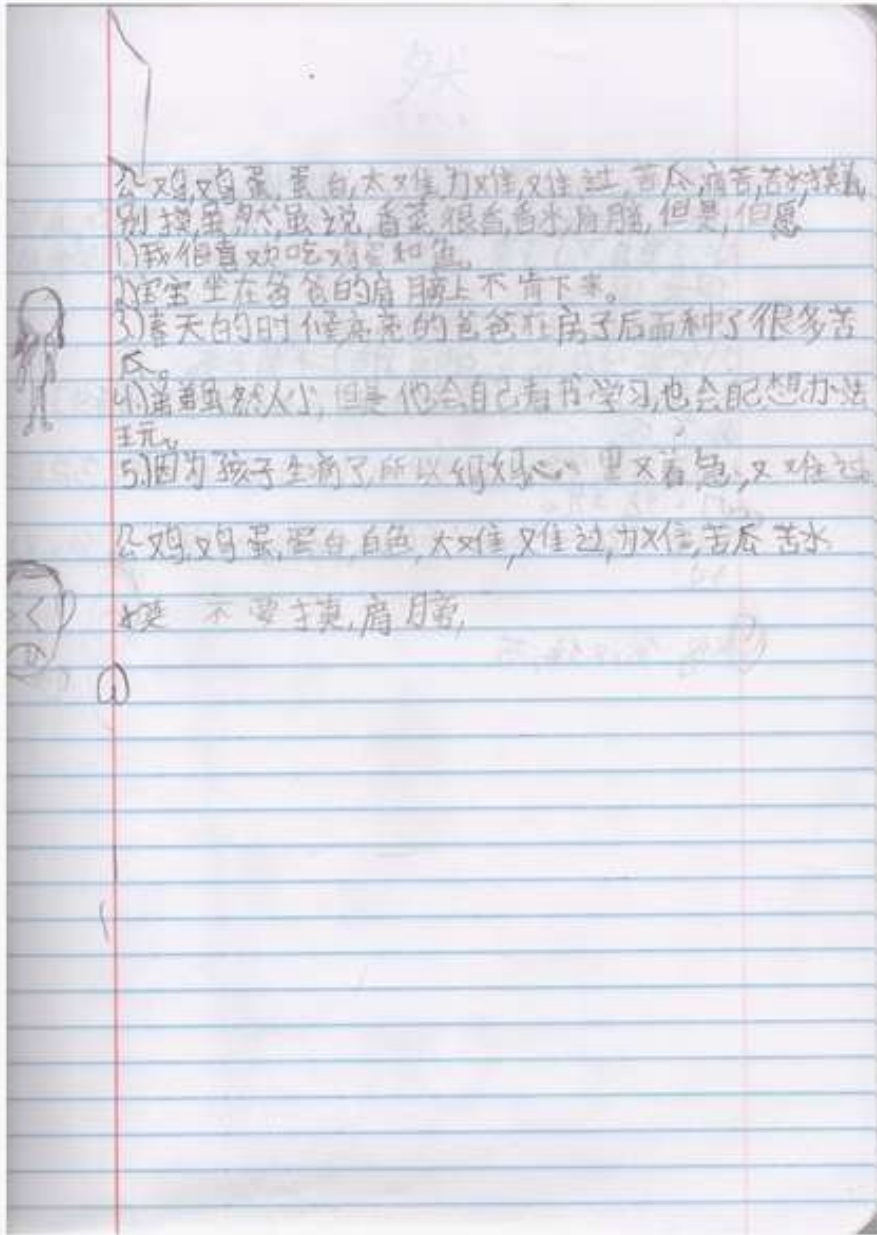 公鸡,鸡蛋,蛋白,太难,力难,难过,苦瓜,病苦,苦水,摸
别摸,虽然,虽说,香菜,很香,香水,肩膀,但是,但愿
1)我很喜欢吃鸡蛋和鱼。
2)宝宝坐在爸爸的肩膀上不肯下来。
3)春天的时候,亮亮的爸爸在房子后面种了很多苦
瓜。
4)弟弟虽然人小,但是他会自己看书学习,也会自己想办法
玩。
5.)因为孩子生病了,所以妈妈心里又着急,又难过。
公鸡,鸡蛋,蛋白,白色,太难,难过,力难,苦瓜 苦水
摸 不要摸,肩膀,